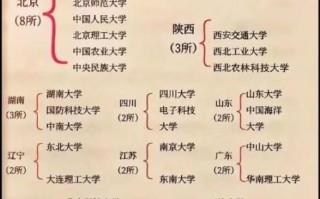 北京师范大学
中国人民大学
(8所)
北京理工大学
中国农业大学
中央民族大学
陕西
(3所)
西安交通大学
西北工业大学
西北农林科技大学
湖南
(3所)
湖南大学
国防科技大学
中南大学
四川
(2所)
四川大学
电子科技
大学
山东
(2所)
山东大学
中国海洋
大学
辽宁
(2所)
东北大学
大连理工大学
江苏
(2所)
南京大学
东南大学
广东
(2所)
中山大学
华南理工大学